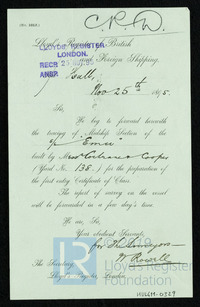 C.R.W.
Lloyd's Register of British
and Foreign Shipping,
LLOYDS REGISTER
LONDON.
RECD
ANSD
Hull,
Nov 25th
Sir,
We beg to forward herewith
the tracing of Midship Section of the
built by Messrs Cochrane & Cooper
(Yard No. 135.) for the preparation of
the first entry Certificate of Class.
The report of survey on the vessel
will be forwarded in a few days' time.
We are, Sir,
Your obedient Servants,
for The Surveyors
The Secretary,
Lloyd's Register, London.
Lloyd's Register
Foundation